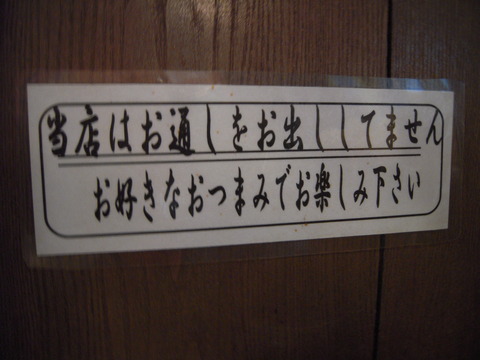 当店はお通しをお出ししてません
お好きなおつまみでお楽しみ下さい